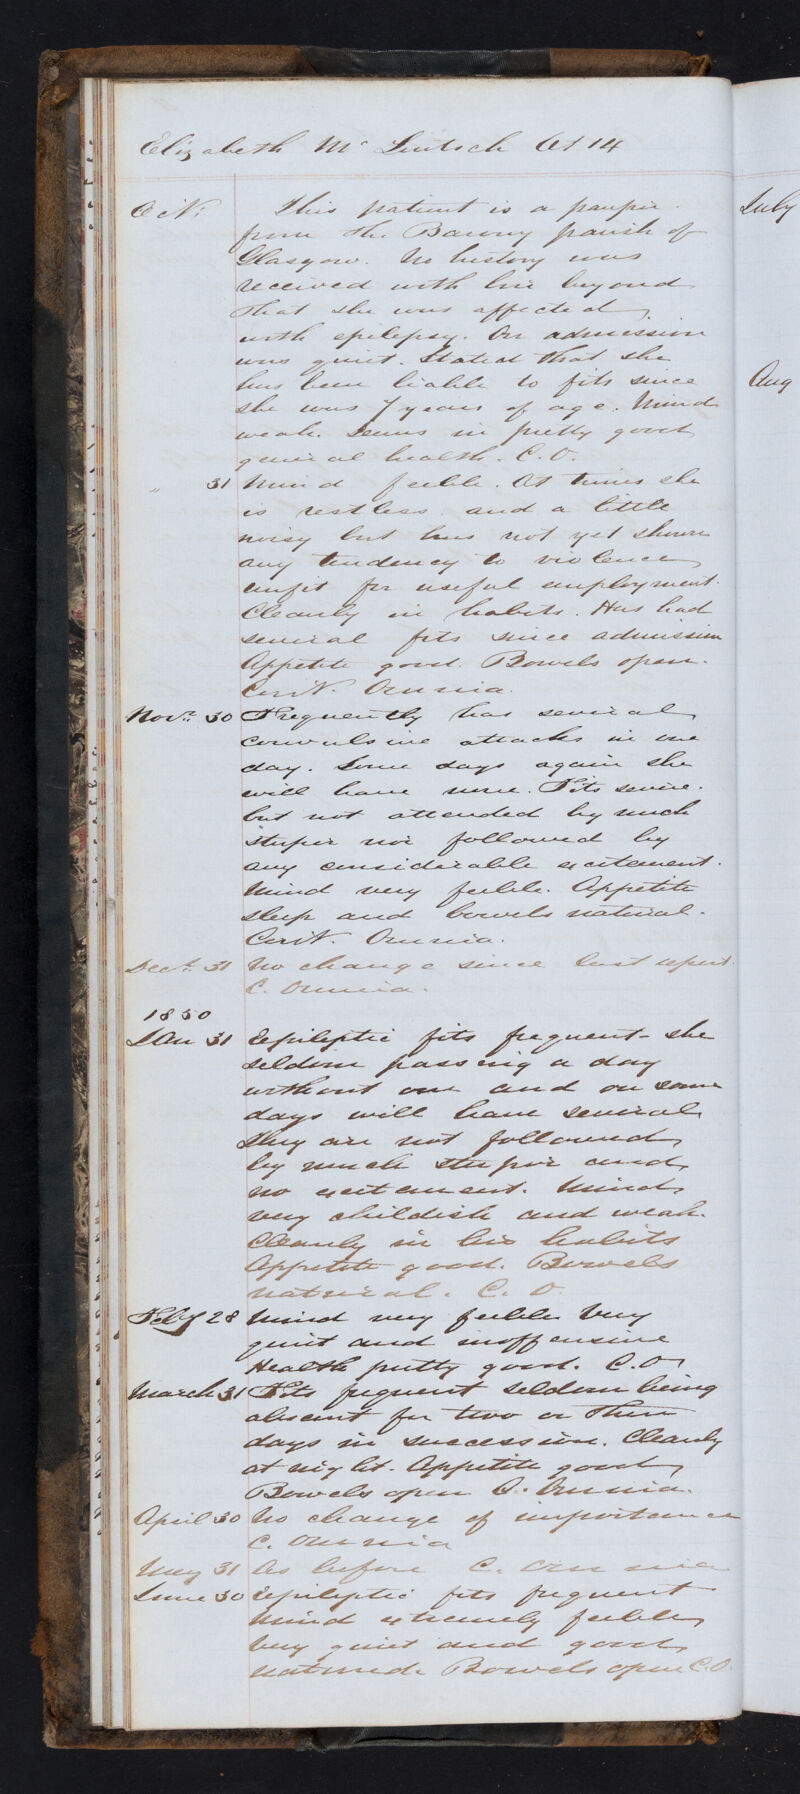 Elizabeth Mc Lintock Æt 14
Octr. This patient is a pauper
from the Barony parish of
Glasgow. No history was
received with her beyond
that she was affected
with epilepsy. On admission
was quiet. Stated that she
has been liable to fits since
she was 7 years of age. Mind
weak. Seems in pretty good
general health. C.O.
" 31 Mind feeble. At times she
is restless and a little
noisy but has not yet shown
any tendency to violence
unfit for useful employment.
Cleanly in habits. Has had
several fits since admission
Appetite good. Bowels open.
Contr. Omnia.
Novr. 30 Frequently has several
convulsive attacks in one
day. Some days again she
will have none. Fits severe.
but not attended by much
stupor nor followed by
any considerable excitement.
Mind very feeble. Appetite
sleep and bowels natural.
Contr. Omnia.
Decr. 31 No change since last report.
C. Omnia.
1850
Jan 31 Epileptic fits frequent - she
seldom passing a day
without one and on some
days will have several
They are not followed
by much stupor and
no excitement. Mind
very childish and weak.
Cleanly in her habits
Appetite good. Bowels
natural. C. O.
Feby 28 Mind very feeble Very
quiet and inoffensive
Health pretty good. C.O.
March 31 Fits frequent seldom being
absent for two or three
days in succession. Cleanly
at night. Appetite good
Bowels open C. Omnia.
April 30 No change of importance
C. Omnia
May 31 As before C. Omnia
June 30 Epileptic fits frequent
Mind extremely feeble
Very quiet and good
natured. Bowels open C.O.
July
Aug